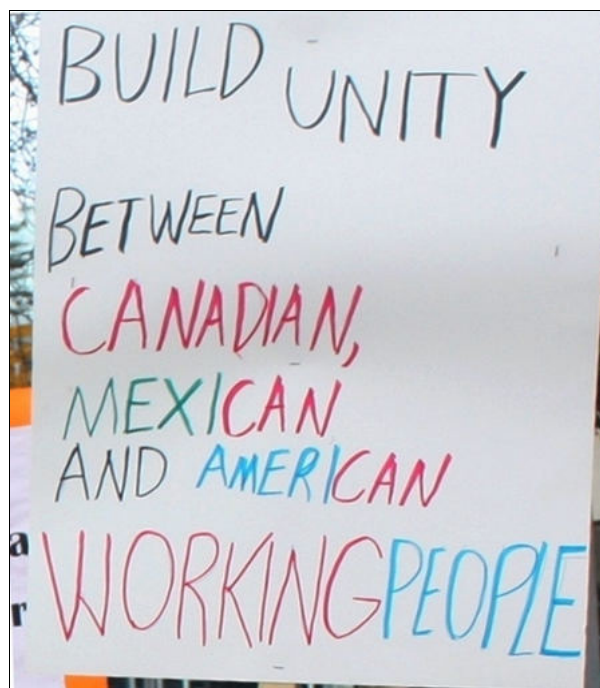 BUILD UNITY
BETWEEN
CANADIAN,
MEXICAN
AND AMERICAN
WORKING PEOPLE